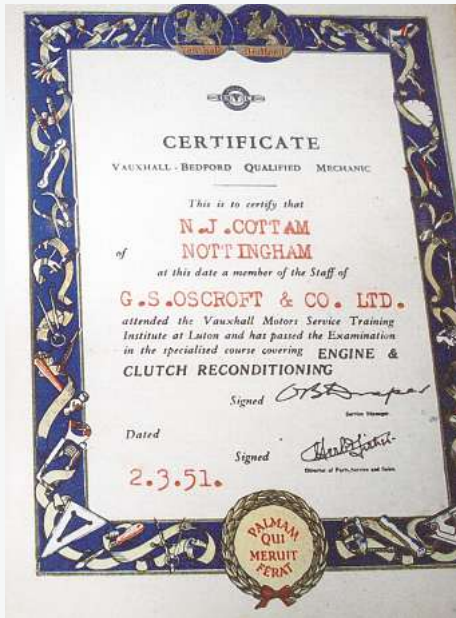 Vauxhall Bedford
CERTIFICATE
VAUXHALL - BEDFORD QUALIFIED MECHANIC
This is to certify that
N.J.COTTAM
of NOTTINGHAM
at this date a member of the Staff of
G.S.OSCROFT & CO. LTD.
attended the Vauxhall Motors Service Training
Institute at Luton and has passed the Examination
in the specialised course covering ENGINE &
CLUTCH RECONDITIONING
Signed
Service Manager
Dated
Signed
Director of Parts, Service and Sales
2.3.51.
PALMAM
QUI
MERUIT
FERAT